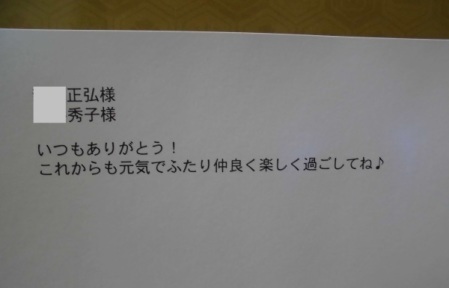 正弘様
秀子様
いつもありがとう！
これからも元気でふたり仲良く楽しく過ごしてね♪